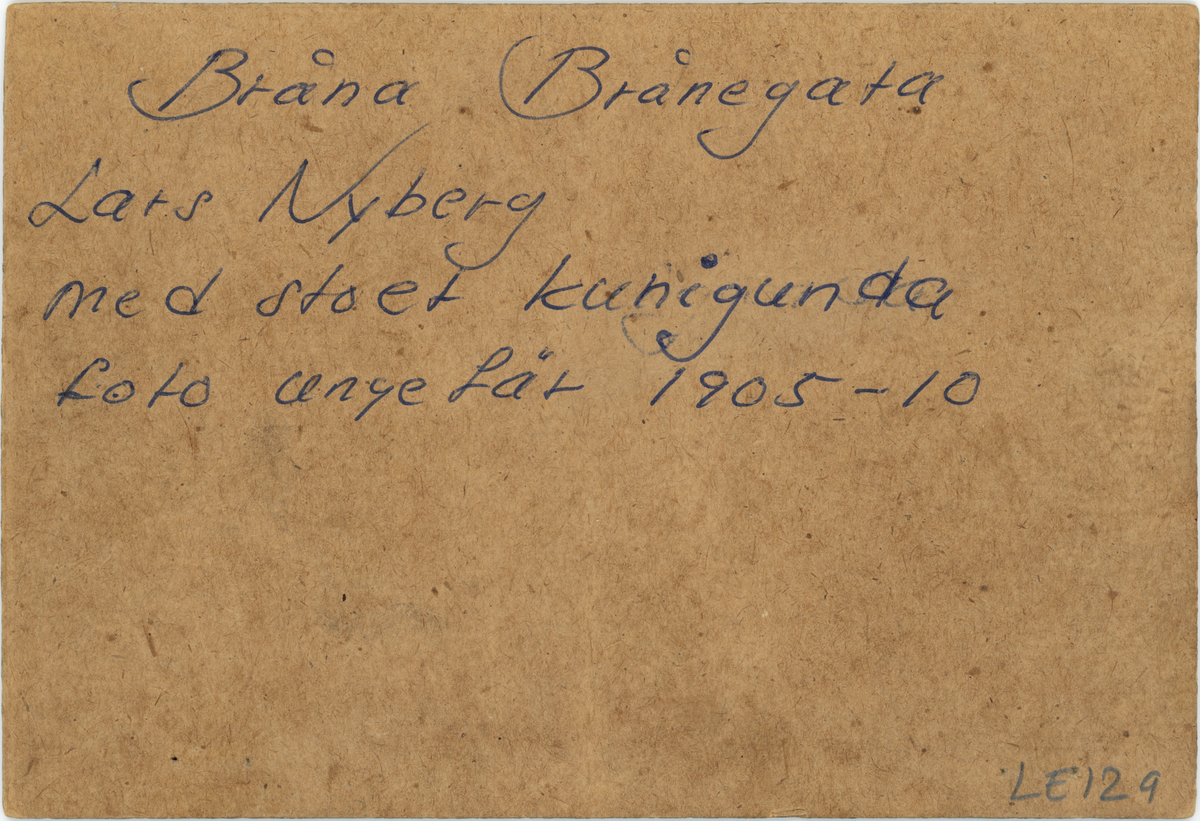 Bråna Brånegata
Lars Nyberg
med stoet kunigunda
foto ungefär 1905-10
LE129